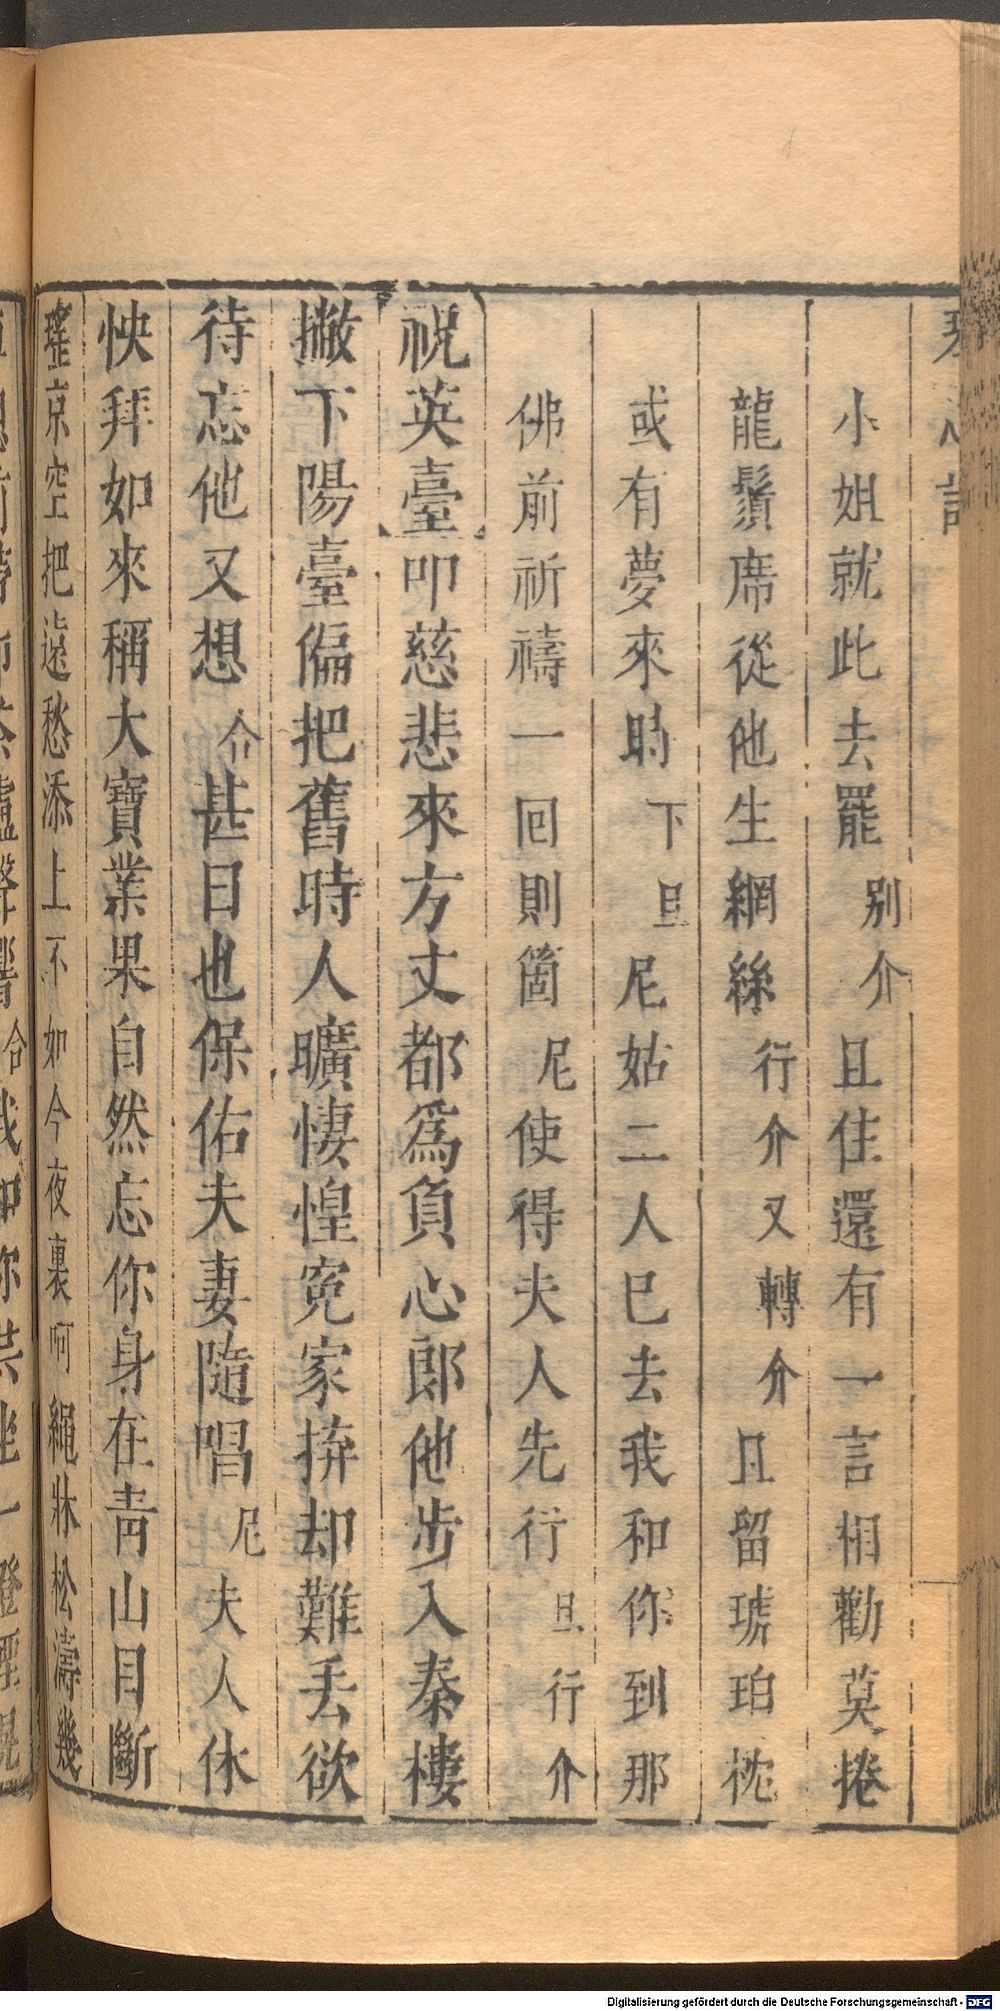 小姐就此去罷別介且住還有一言相勸莫捲
龍鬚席從他生網絲行介又轉介且留琥珀枕
或有夢來時下旦尼姑二人已去我和你到那
佛前祈禱一回則箇尼使得夫人先行旦行介
祝英臺叩慈悲來方丈都爲負心郎他步入秦樓
撇下陽臺偏把舊時人曠悽惶寃家拚却難丢欲
待忘他又想介甚日也保佑夫妻隨唱尼夫人休
怏拜如來稱大寶業果自然忘你身在靑山目斷
瑤京空把遠愁添上不如今夜裏呵繩牀松濤幾
Digitalisierung gefördert durch die Deutsche Forschungsgemeinschaft - DFG